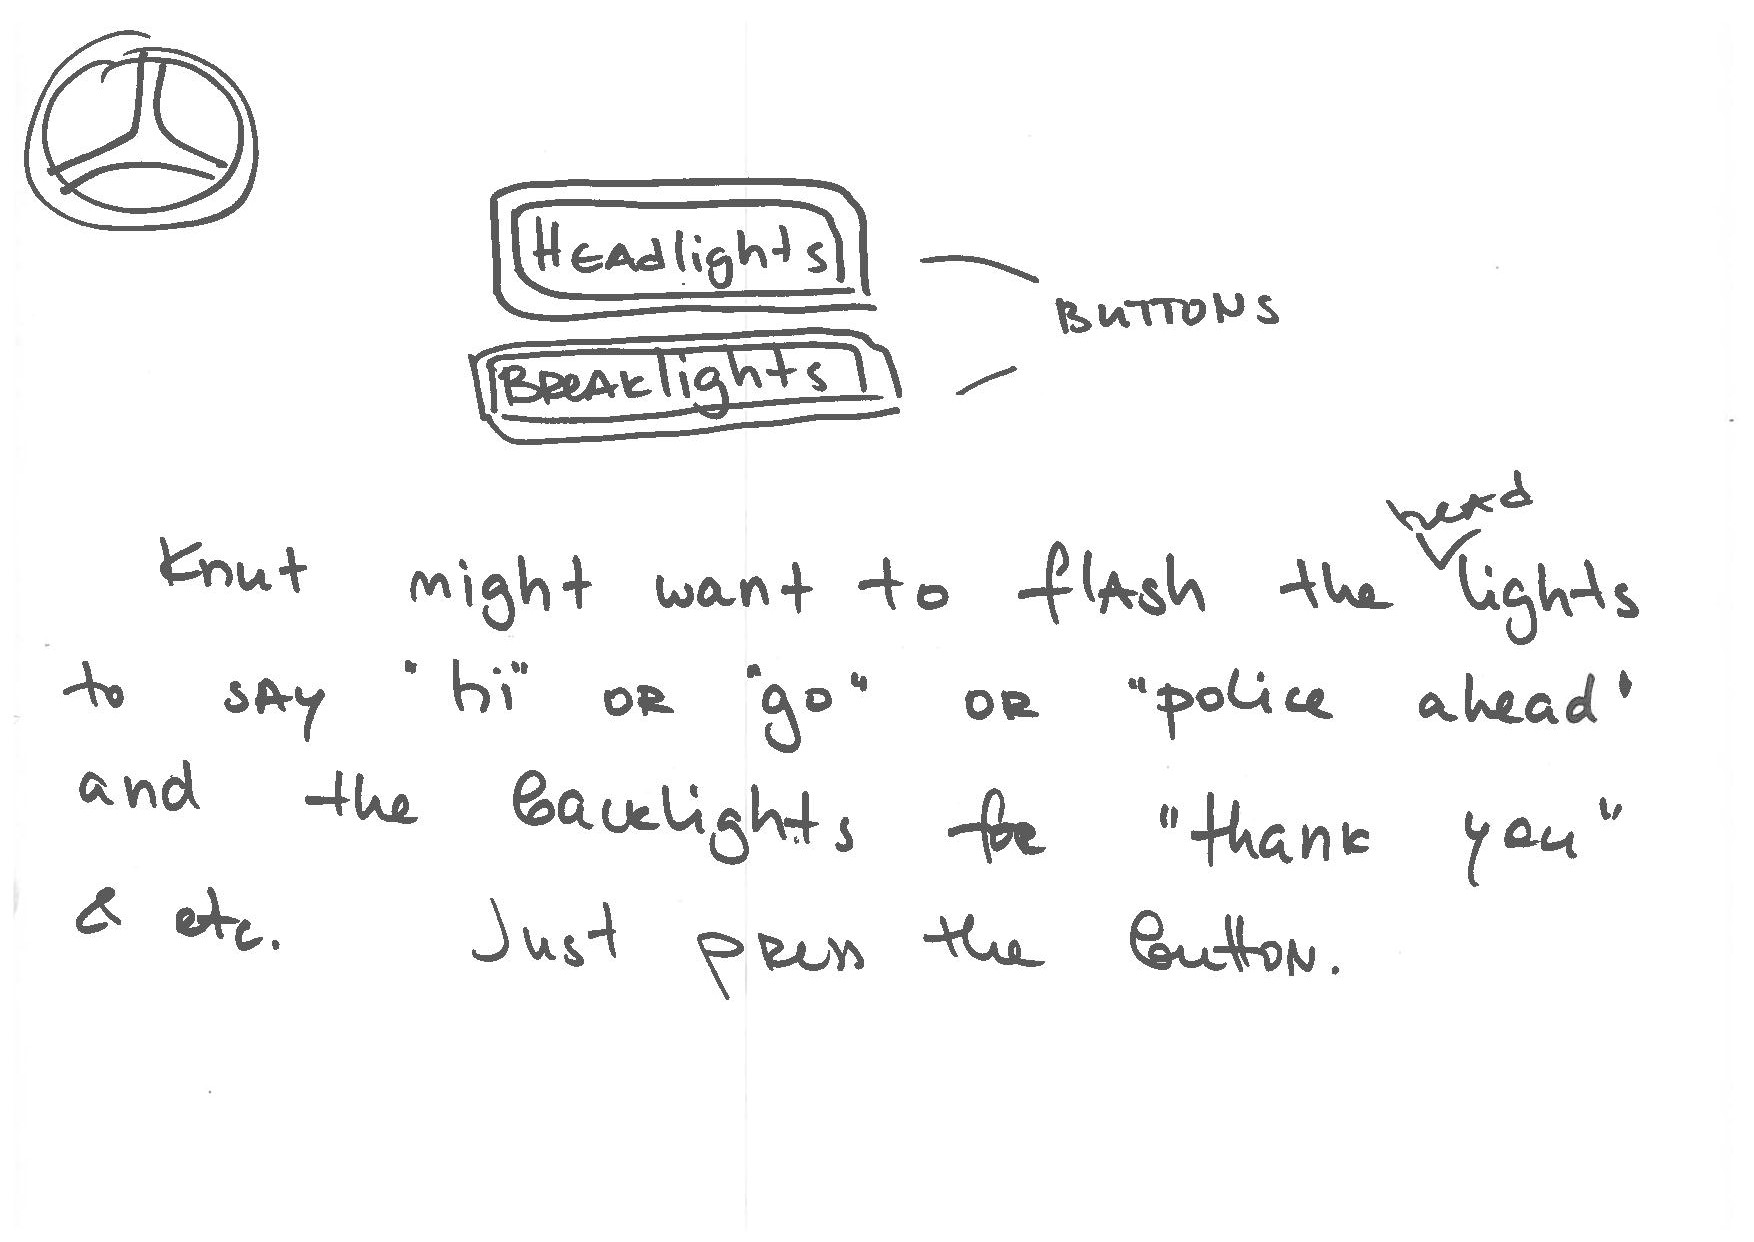 Headlights
BUTTONS
Breaklights
head
Knut might want to flash the lights
to say "hi" or "go" or "police ahead'
and the backlights for "thank you"
& etc. Just press the button.